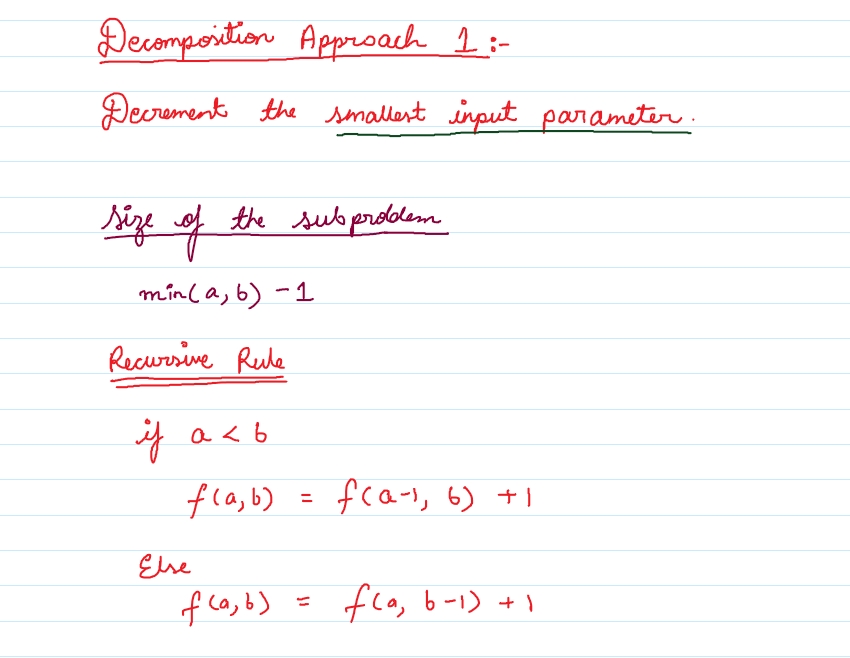 Decomposition Approach 1 :-
Decrement the smallest input parameter.
Size of the subproblem
min(a, b) - 1
Recursive Rule
if a < b
f(a, b) = f(a-1, b) + 1
Else
f(a, b) = f(a, b-1) + 1